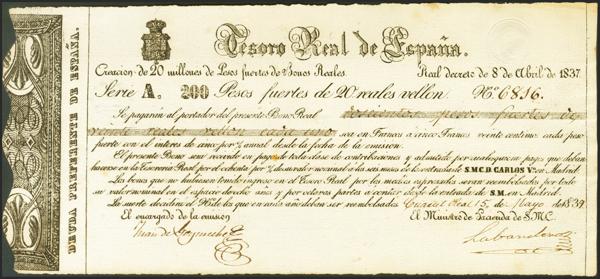 Tesoro Real de España.
Creacion de 20 millones de Pesos fuertes de Bonos Reales. Real decreto de 8 de Abril de 1837.
Serie A. 200 Pesos fuertes de 20 reales vellon. Nº 6816.
Se pagarán al portador del presente Bono Real doscientos pesos fuertes de
veinte reales vellon cada uno sea en Francos a cinco Francos veinte centimos cada peso
fuerte con el interes de cinco por % anual desde la fecha de la emision.
El presente Bono será recivido en pago de toda clase de contribuciones y admitido por cualesquiera pagos que deban
hacerse en la Tesoreria Real por el ochenta por % de su valor nominal a los seis meses de la entrada de S.M.C.D. CARLOS Vº en Madrid.
Los bonos que no hubieran tenido ingreso en el Tesoro Real por los medios espresados serán reembolsados por todo
su valor nominal en el espacio de ocho años y por octavas partes a contar desde la entrada de S.M. en Madrid.
La suerte decidirá el Nº de los que en cada año deban ser reembolsados. Cuartel Real 15 de Mayo de 1839
El encargado de la emision El Ministro de Hacienda de S.M.C.
Juan de
Labandero
DEUDA PREFERENTE DE ESPAÑA.